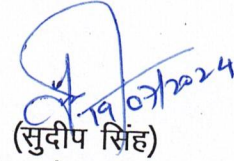 19/07/2024
(सुदीप सिंह)